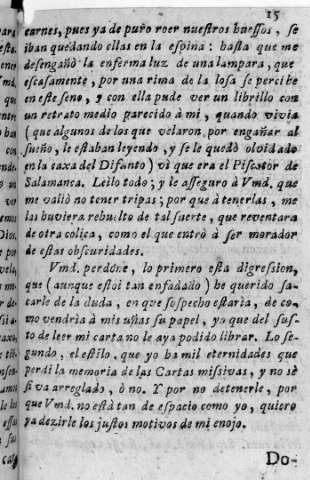 15
carnes, pues ya de puro roer nuestros huessos, se
iban quedando ellas en la espina: hasta que me
desengañò la enferma luz de una lampara, que
escasamente, por una rima de la losa se percibe
en este seno, y con ella pude ver un librillo con
un retrato medio parecido à mi, quando vivia
(que algunos de los que velaron, por engañar al
sueño, le estaban leyendo, y se le quedò olvidado
en la caxa del Difunto) vì que era el Piscator de
Salamanca. Leìlo todo; y le asseguro à Vmd. que
me valiò no tener tripas; por que à tenerlas, me
las huviera rebuelto de tal suerte, que reventara
de otra colica, como el que entrò à ser morador
de estas obscuridades.
Vmd. perdone, lo primero esta digression,
que (aunque estoi tan enfadado) he querido sa-
carle de la duda, en que sospecho estaria, de co-
mo vendria à mis uñas su papel, ya que del sus-
to de leer mi carta no le aya podido librar. Lo se-
gundo, el estilo, que yo ha mil eternidades que
perdi la memoria de las Cartas missivas, y no sè
si va arreglado, ò no. Y por no detenerle, por
que Vmd. no està tan de espacio como yo, quiero
ya dezirle los justos motivos de mi enojo.
Do-